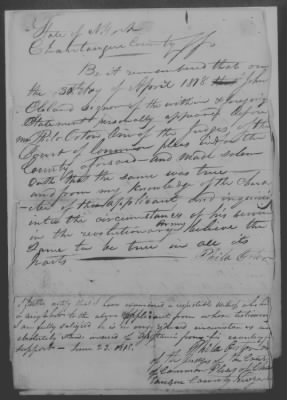 State of N York
Chautauque County ss
Be it remembered that on
the 30 day of April 1818 John
Cleland signer of the within & foregoing
Statement personally appeared before
me Philo Orton, One of the Judges of the
Court of common pleas in & for the
County aforesaid and made solemn
Oath that the same was true
and from my knowledge of the Chara-
cter of the applicant, and inquiries
into the circumstances of his service
in the revolutionary army believe the
same to be true in all its
parts
Philo Orton
I further certify that I have examined a respectable witness who
in any relation to the above applicant from whose testimony
am fully satisfied he is in reduced circumstances and
absolutely stands in need of assistance from his country for
support - June 23. 1818.
Philo Orton
of the Judges of the Court
of Common Pleas of Chau
tauque County New York